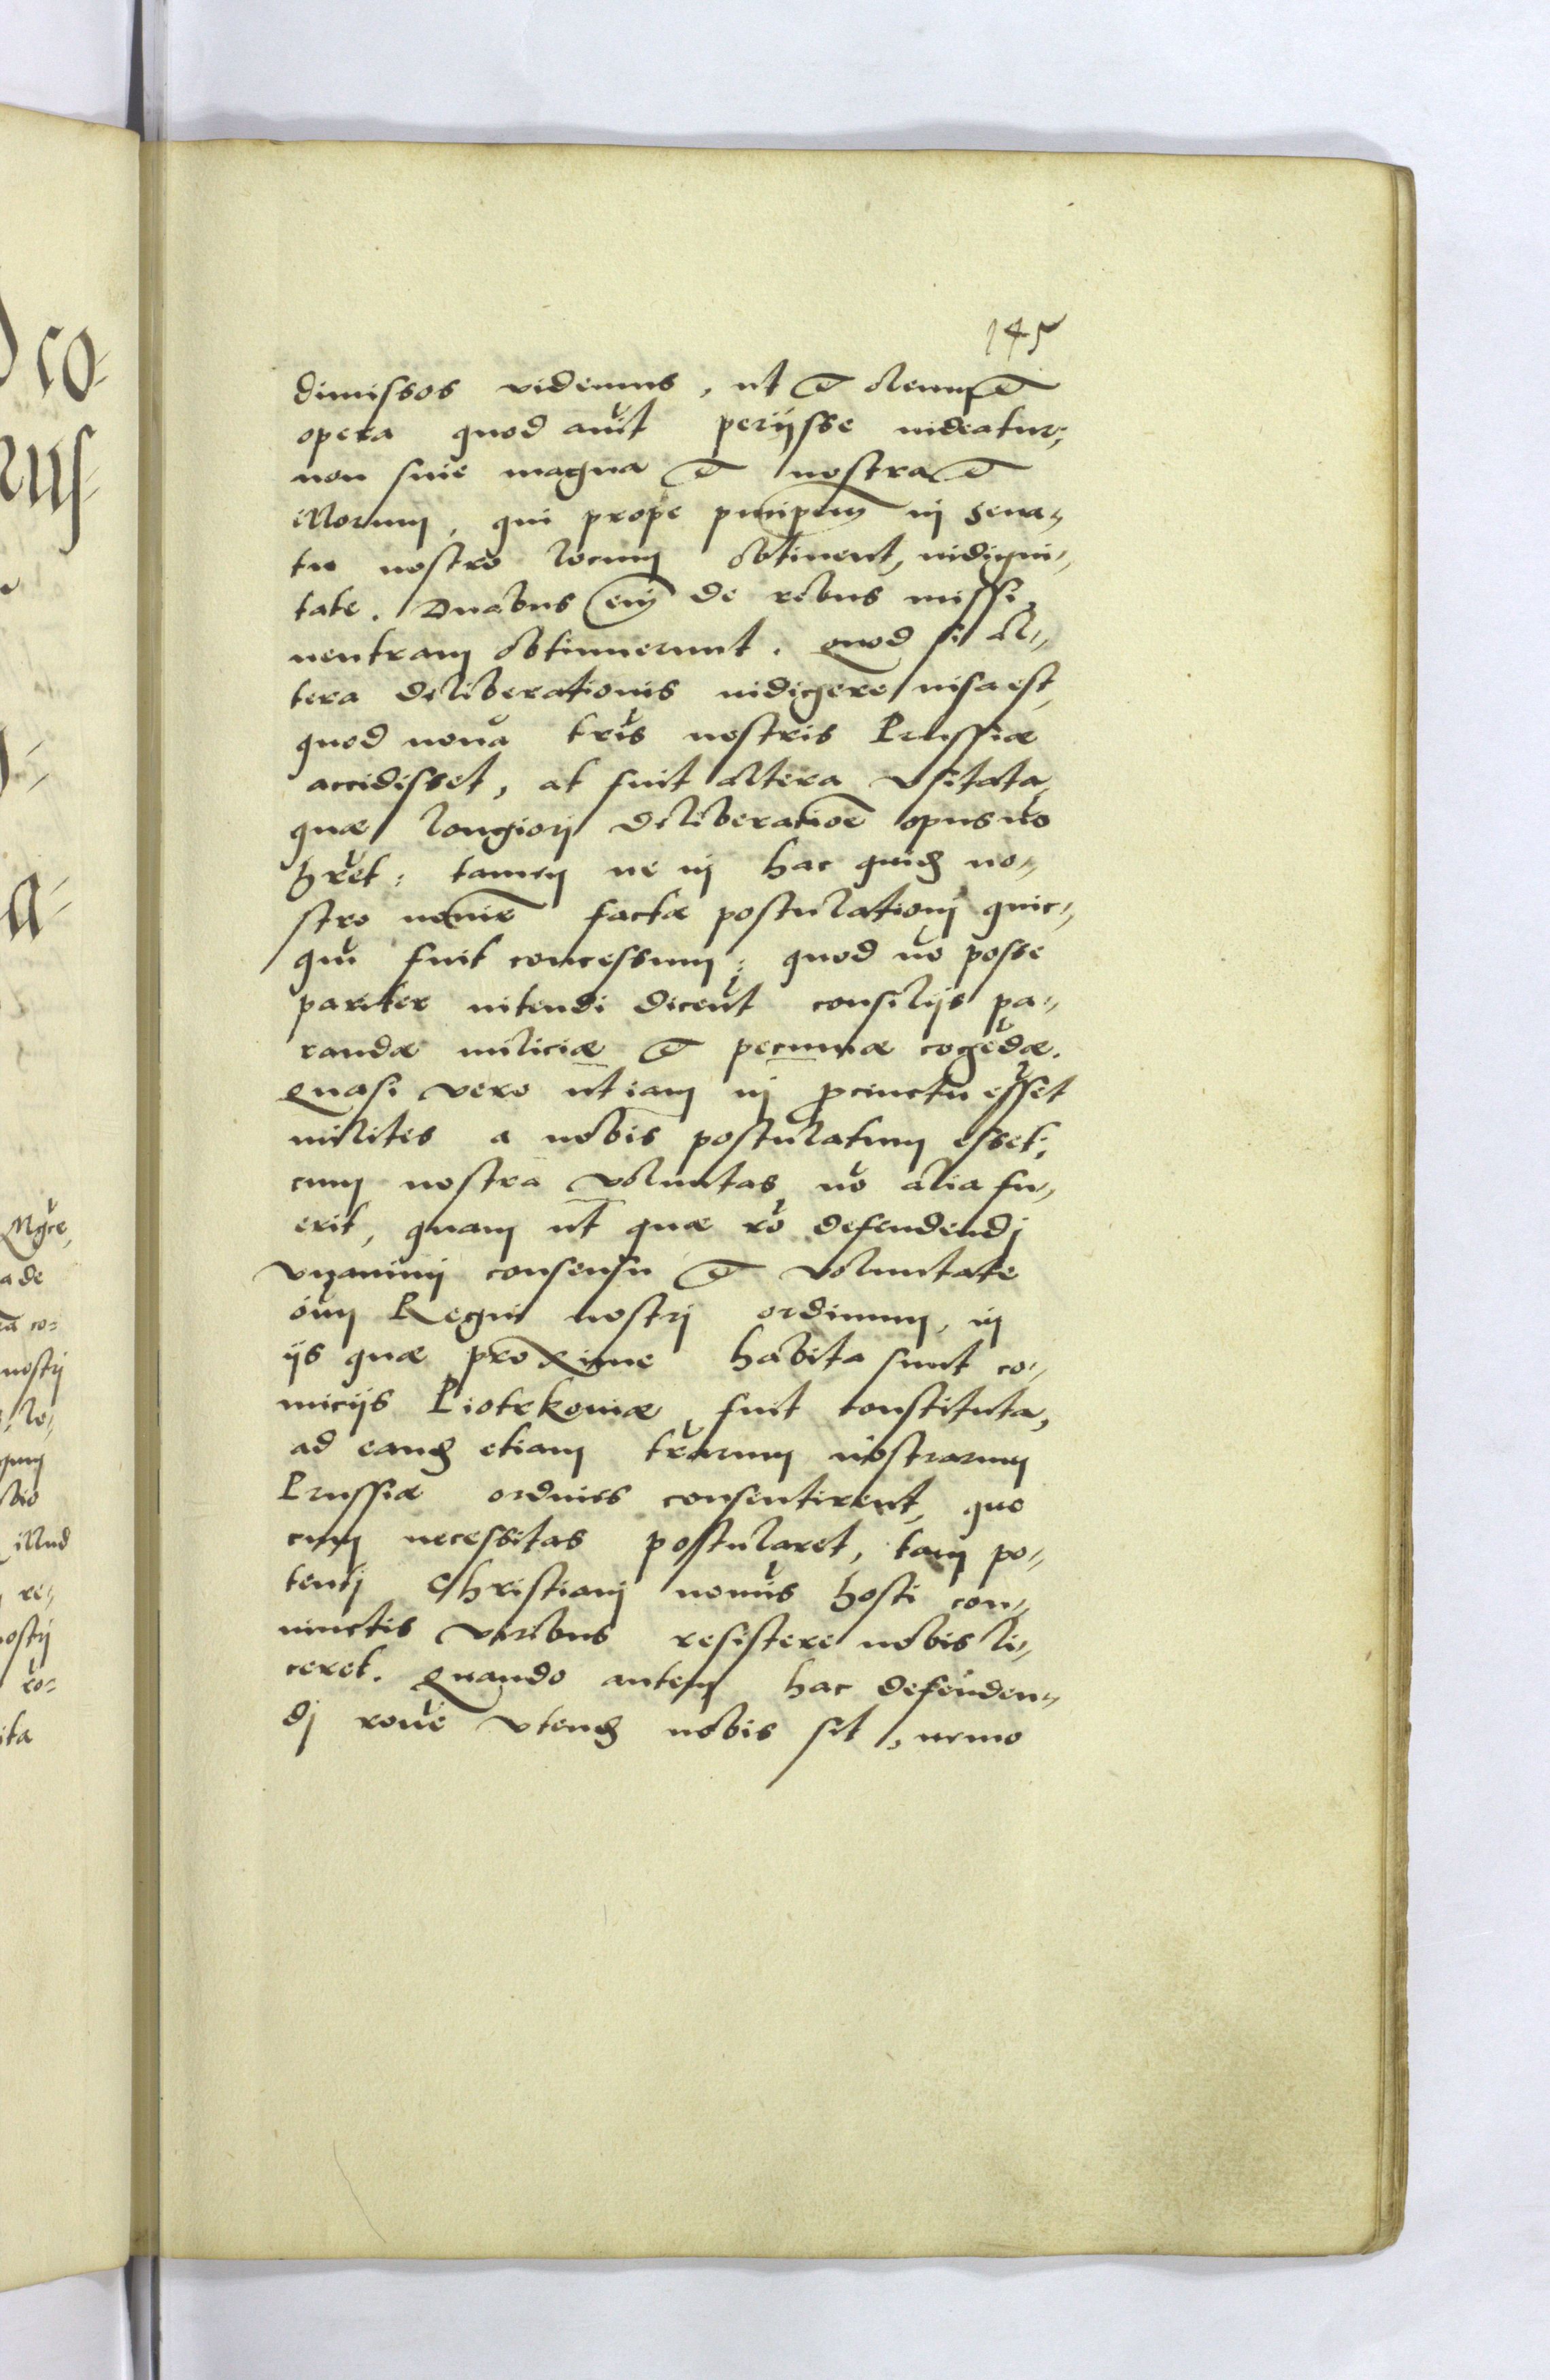 145
dimissos videmus, ut et oleum et
opera quod aūt perijsse videatur;
non sine magna et nostra et
illorum, qui prope principem in Sena„
tu nostro locum obtinent, indigni„
tate. Duabus em̄ de rebus missi,
neutram obtinuerunt. Quod si al„
tera deliberationis indigere visa est,
quod noua tr̄is nostris Prussiæ
accidisset, at fuit altera vsitata,
quæ longiorj deliberatiōe opus nō
hr̄et: tamen ne in hac quidē no„
stro no̅ie factæ postulationj quic„
qū fuit concessum: quod nō posse
pariter iniendi dicūt consilijs pa„
randæ miliciæ et pecuniæ cogēdæ.
Quasi vero ut iam in ꝓcinctu essēt
milites a nobis postulatum esset:
cum nostra voluntas nō alia fu„
erit, quam ut quæ rō defendendj
vnanimj consensu et voluntate
oīm Regni nostrj ordinum, in
ijs quæ proxime habita sunt co„
micijs Piotrkouiæ, fuit constituta,
ad eandē etiam tr̄arum nostrarum
Prussiæ ordines consentirent, quo
cum necessitas postularet, tam po„
tentj Christianj nomīs hosti con„
iunctis viribus resistere nobis li„
ceret. Quando autem hac defenden„
dj rōne vtendū nobis sit, nemo
Dco-
rus-
a-
Mgce,
a de
ra co-
nostrj
illud
re„
nostrj
ro-
ita